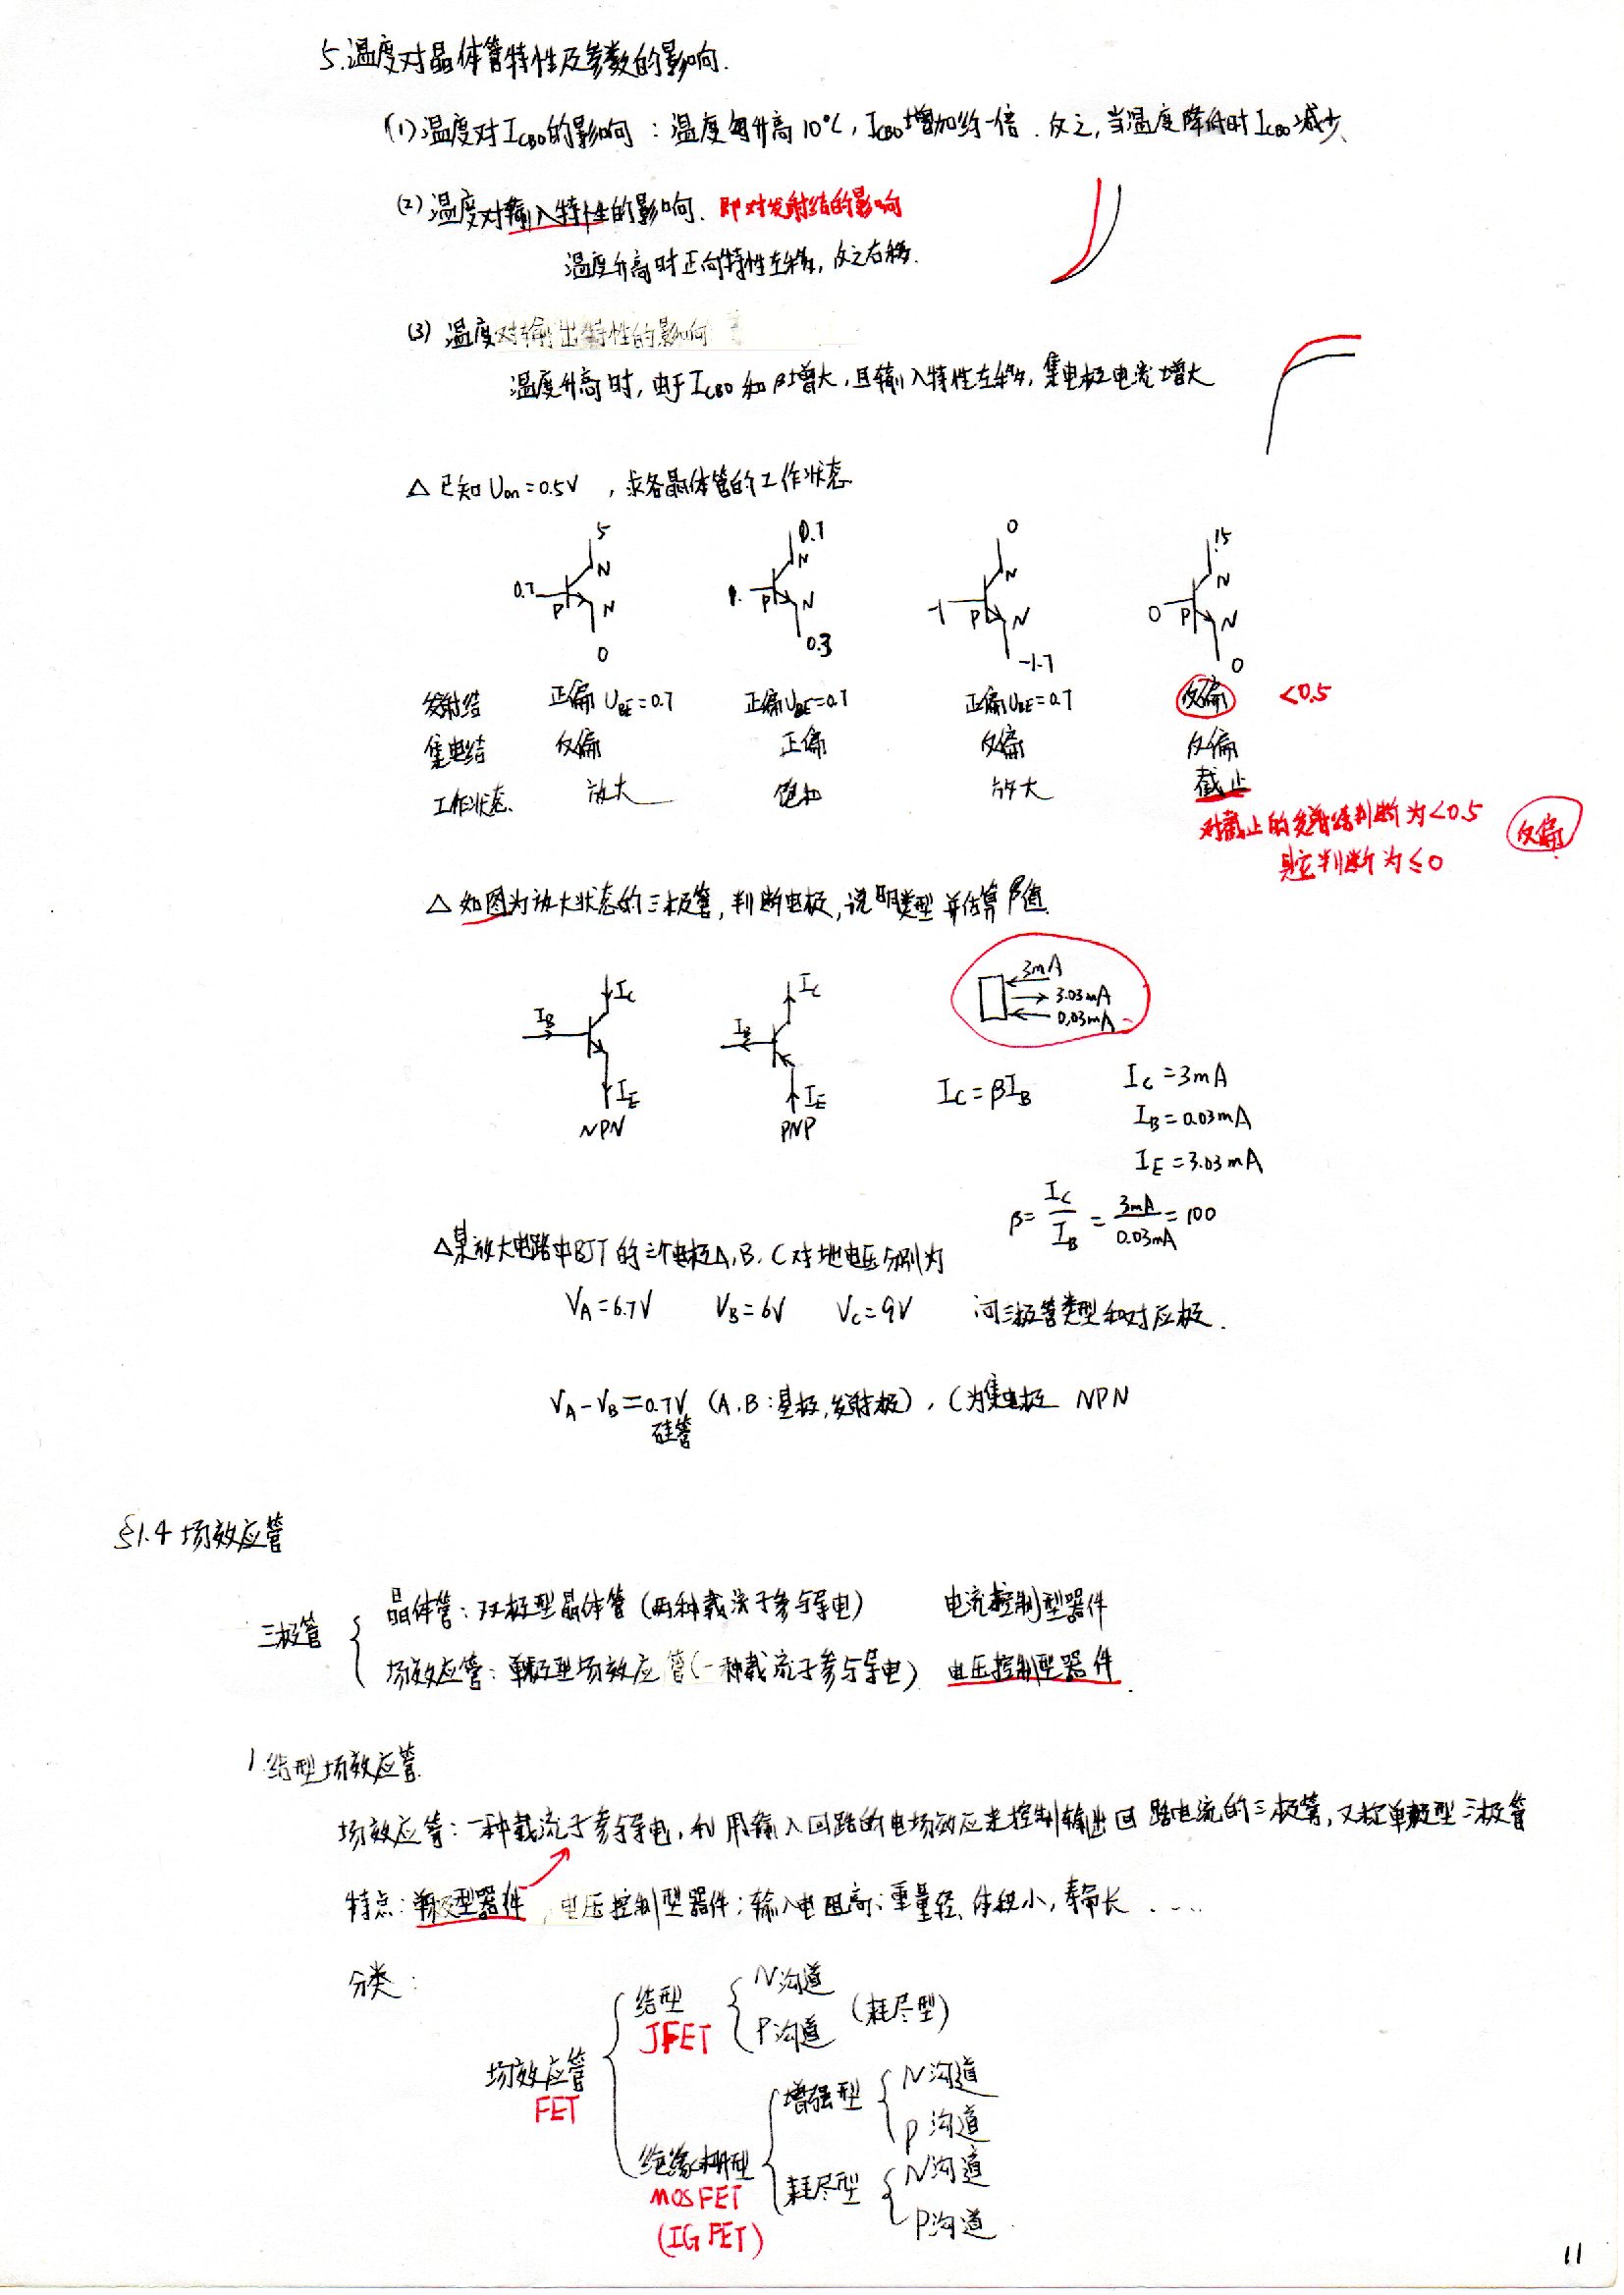 5.温度对晶体管特性及参数的影响.
(1)温度对ICBO的影响:温度每升高10℃,ICBO增加约一倍.反之,当温度降低时ICBO减少.
(2)温度对输入特性的影响.即对发射结的影响
温度升高时正向特性左移,反之右移.
(3)温度对输出特性的影响
温度升高时,由于ICBO和β增大,且输入特性左移,集电极电流增大
△已知Uon=0.5V,求各晶体管的工作状态
5 0.7 0 15
N N N N
0.7 1. -1 0
P N P N P N P N
0 0.3 -1.7 0
发射结 正偏UBE=0.7 正偏UBE=0.7 正偏UBE=0.7 反偏 <0.5
集电结 反偏 正偏 反偏 反偏
工作状态. 放大 饱和 放大 截止
对截止的发射结判断为<0.5 反偏
判断为≤0
△如图为放大状态的三极管,判断电极,说明类型并估算β值.
IC IC 3mA
IB IB 3.03mA
0.03mA
IE IE
NPN PNP
IC=βIB IC=3mA
IB=0.03mA
IE=3.03mA
β=IC/IB=3mA/0.03mA=100
△某放大电路中BJT的三个电极A,B,C对地电压分别为
VA=6.7V VB=6V VC=9V 问三极管类型和对应极.
VA-VB=0.7V (A,B:基极,发射极),C为集电极 NPN
硅管
§1.4 场效应管
三极管 { 晶体管:双极型晶体管(两种载流子参与导电) 电流控制型器件
场效应管:单极型场效应管(一种载流子参与导电) 电压控制型器件.
1.结型场效应管.
场效应管:一种载流子参与导电,利用输入回路的电场效应来控制输出回路电流的三极管,又称单极型三极管
特点:单极型器件,电压控制型器件;输入电阻高;重量轻、体积小,寿命长.....
分类:
场效应管 FET
结型 JFET { N沟道 P沟道 (耗尽型)
绝缘栅型 MOSFET (IGFET)
增强型 { N沟道 P沟道
耗尽型 { N沟道 P沟道.
11